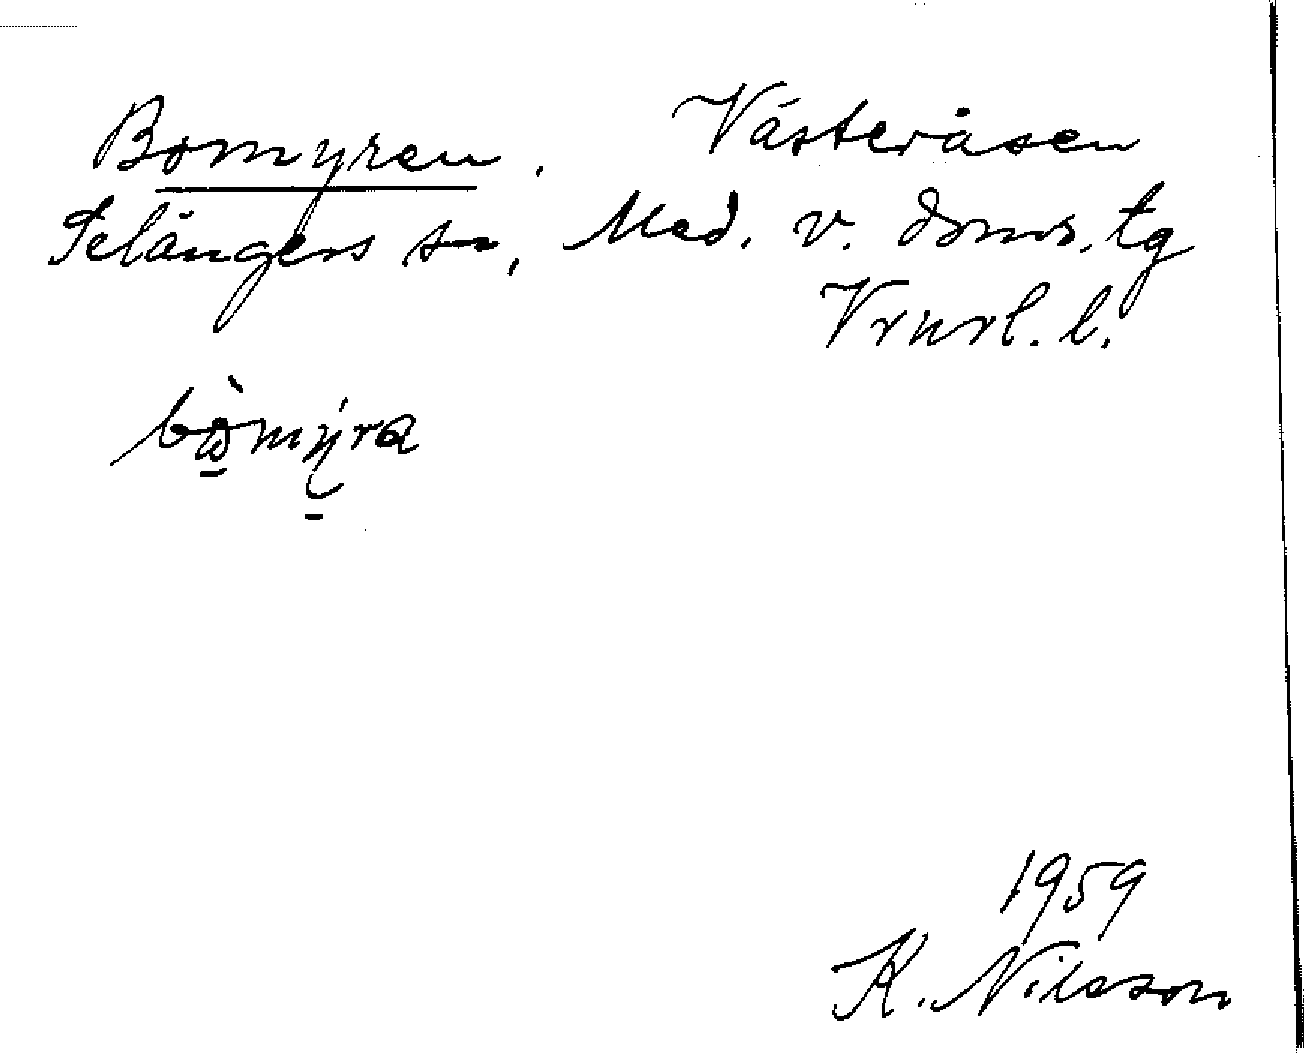 Bomyren. Västeråsen
Selångers sn, Med. v. doms. tg
Vrnrl. l.
bòmýra
1959
K. Nilsson